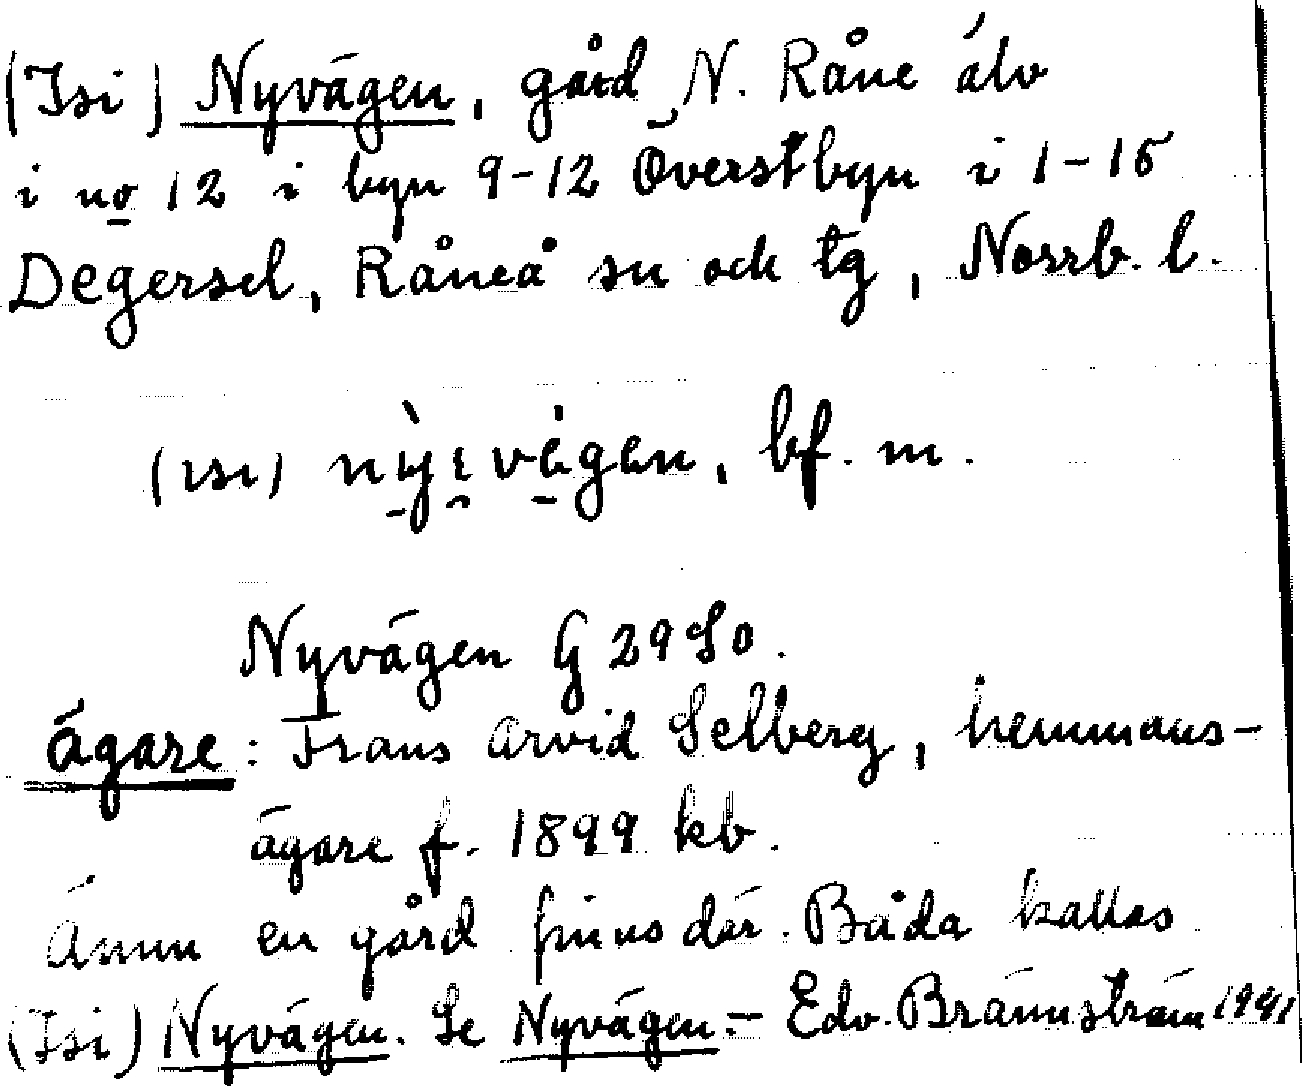 (Isi) Nyvägen, gård N. Råne älv
i no 12 i byn 9-12 Överstbyn i 1-15
Degersel, Råneå sn och tg, Norrb. l.
(ɪsɪ) vägen, bf. m.
Nyvägen G 29 SO.
ägare: Frans Arvid Selberg, hemmans-
ägare f. 1899 kb.
Ännu en gård finns där. Båda kallas
(Isi) Nyvägen. Se Nyvägen. - Edv. Brännström 1941